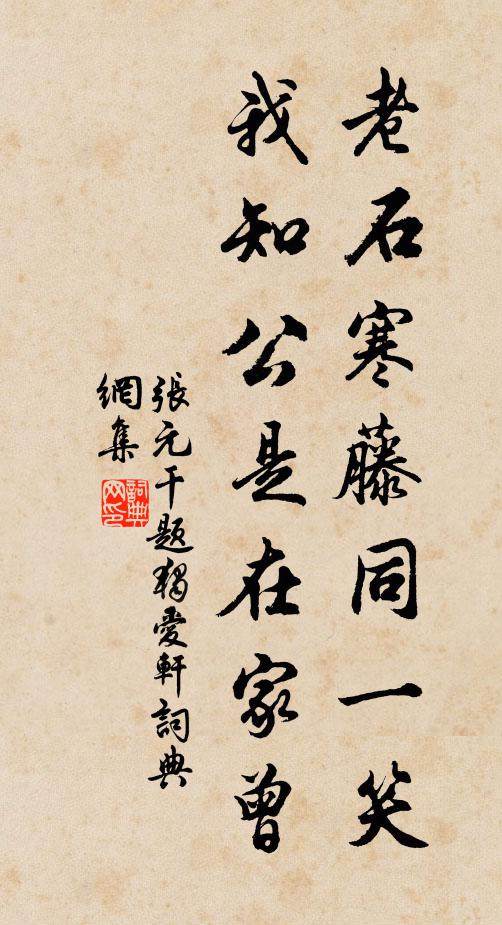 老石寒藤同一笑
我知公是在家曾
張元干题獨愛軒詞典
網集
詞典
网印